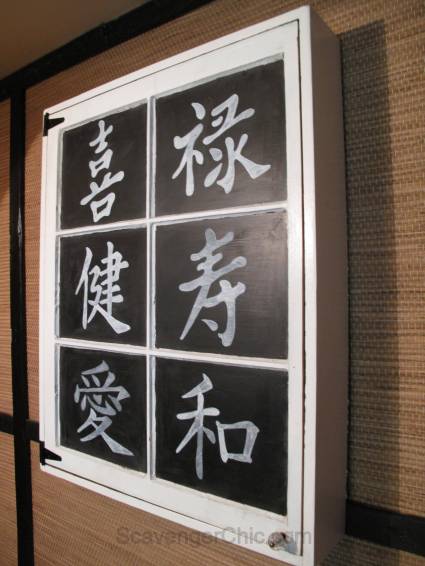 喜 禄
健 寿
愛 和
ScavengerChic.com